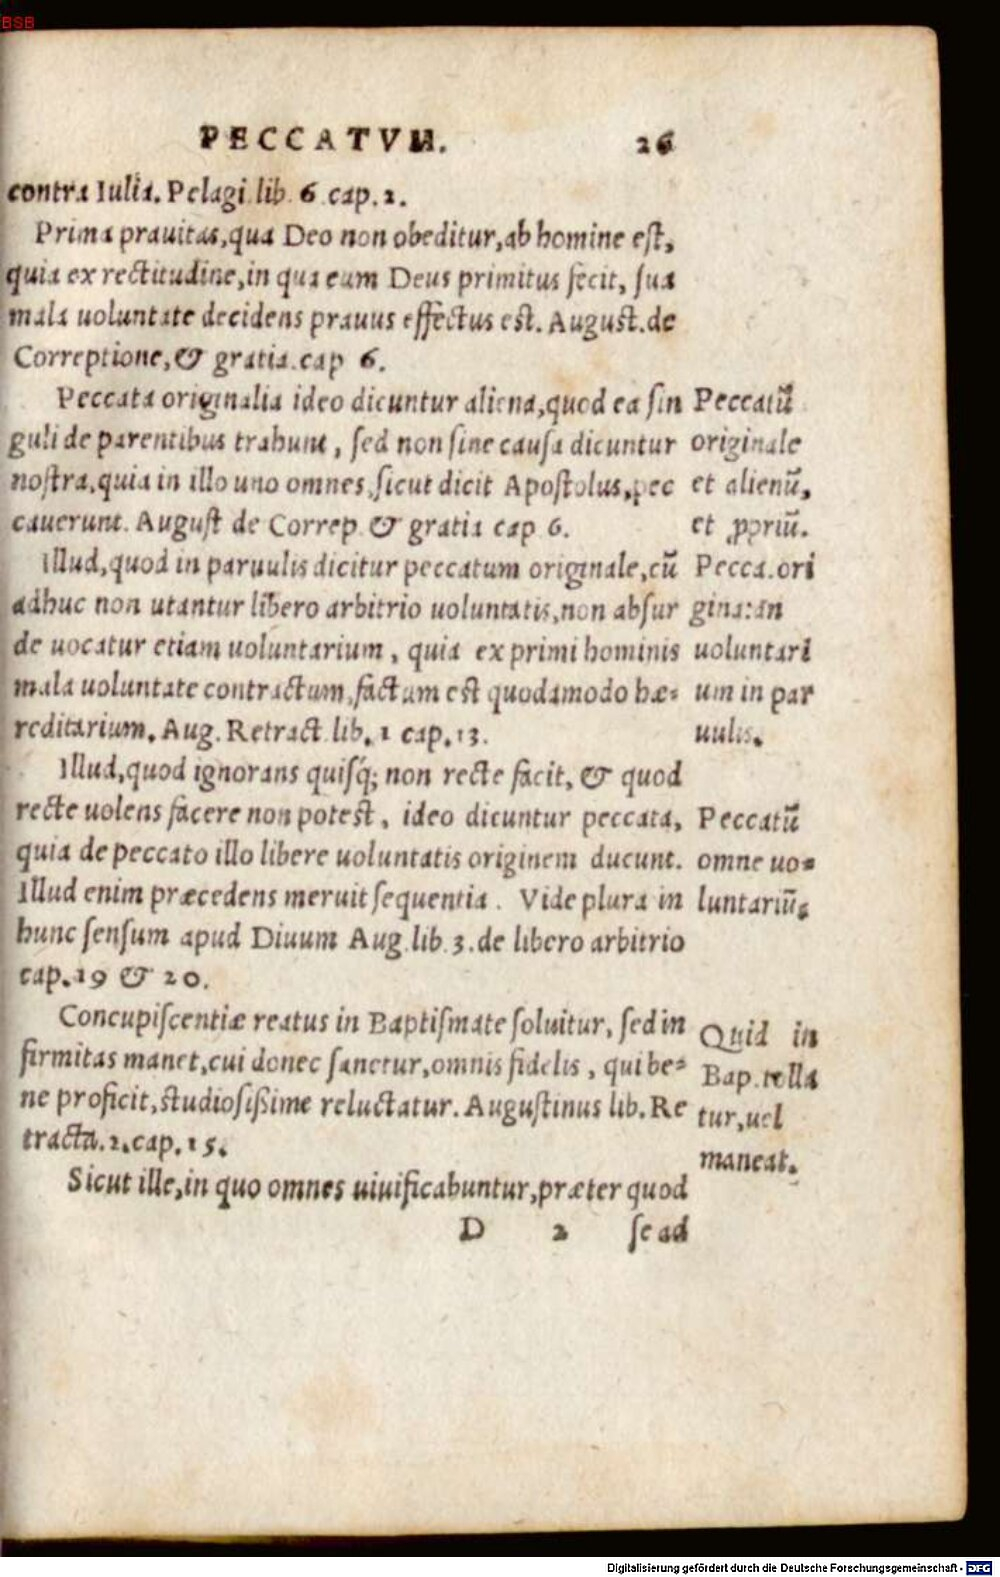 BSB
PECCATVM. 26
contra Iulia. Pelagi lib. 6 cap. 2.
Prima prauitas, qua Deo non obeditur, ab homine est,
quia ex rectitudine, in qua eum Deus primitus fecit, sua
mala uoluntate decidens prauus effectus est. August. de
Correptione, & gratia. cap 6.
Peccata originalia ideo dicuntur aliena, quod ea sin
guli de parentibus trahunt, sed non sine causa dicuntur
nostra, quia in illo uno omnes, sicut dicit Apostolus, pec
cauerunt. August de Correp. & gratia cap 6.
Peccatū
originale
et alienū,
et ꝓpriū.
Illud, quod in paruulis dicitur peccatum originale, cū
adhuc non utantur libero arbitrio uoluntatis, non absur
de uocatur etiam uoluntarium, quia ex primi hominis
mala uoluntate contractum, factum est quodāmodo hæ-
reditarium. Aug. Retract. lib. 1 cap. 13.
Pecca. ori
gina: an
uoluntari
um in par
uulis.
Illud, quod ignorans quisq; non recte facit, & quod
recte uolens facere non potest, ideo dicuntur peccata,
quia de peccato illo libere uoluntatis originem ducunt.
Illud enim præcedens meruit sequentia. Vide plura in
hunc sensum apud Diuum Aug. lib. 3. de libero arbitrio
cap. 19 & 20.
Peccatū
omne uo-
luntariū.
Concupiscentiæ reatus in Baptismate soluitur, sed in
firmitas manet, cui donec sanetur, omnis fidelis, qui be-
ne proficit, studiosissime reluctatur. Augustinus lib. Re
tracta. 2. cap. 15.
Quid in
Bap. tolla
tur, uel
maneat.
Sicut ille, in quo omnes uiuificabuntur, præter quod
D 2 se ad
Digitalisierung gefördert durch die Deutsche Forschungsgemeinschaft - DFG